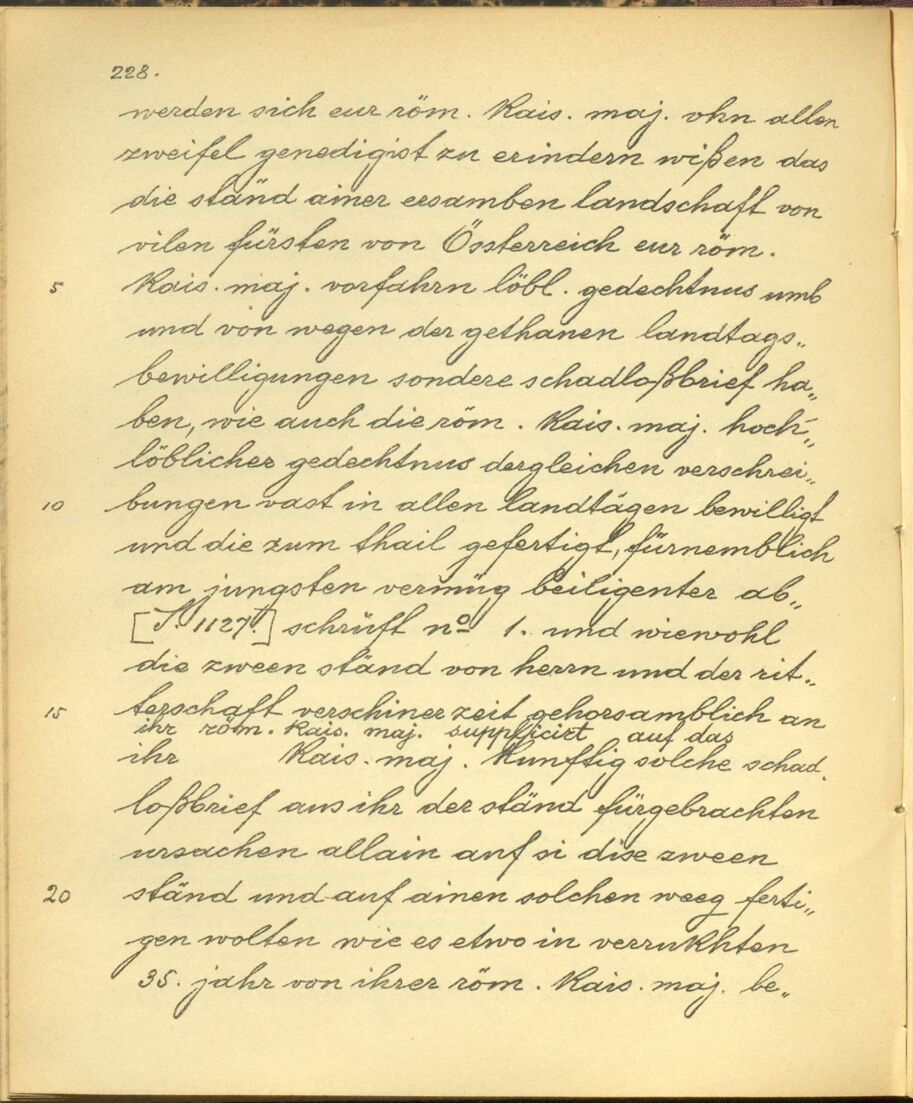 228.
werden sich eur röm. Kais. maj. ohn allen
zweifel genedigist zu erindern wißen das
die ständ ainer ersamben landschaft von
vilen fürsten von Össterreich eur röm.
5 Kais. maj. vorfahrn löbl. gedechtnus umb
und von wegen der gethanen landtags„
bewilligungen sondere schadloßbrief ha„
ben, wie auch die röm. Kais. maj. hoch„
löblicher gedechtnus dergleichen verschrei„
10 bungen vast in allen landtägen bewilligt
und die zum thail gefertigt, fürnemblich
am jungsten vermüg beiligenter ab„
[S. 1127.] schrüft nº 1. und wiewohl
die zween ständ von herrn und der rit„
15 terschaft verschiner zeit gehorsamblich an
ihr röm. Kais. maj. supplicirt auf das
ihr Kais. maj. Kunftig solche schad„
loßbrief aus ihr der ständ fürgebrachten
ursachen allain auf si dise zween
20 ständ und auf ainen solchen weeg ferti„
gen wolten wie es etwo in verrukhten
35. jahr von ihrer röm. Kais. maj. be„